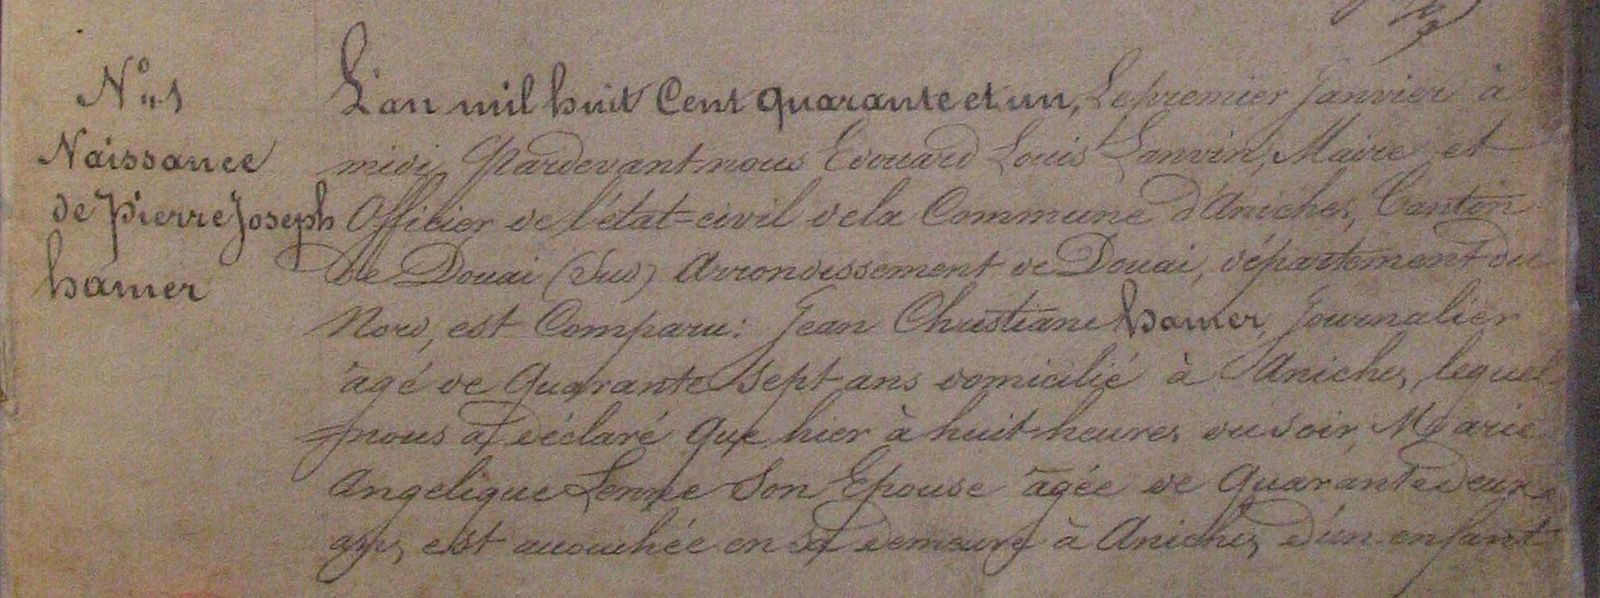 N° 1
Naissance
de Pierre Joseph
hamer
L'an mil huit Cent quarante et un, Le premier Janvier à
midi Pardevant nous Edouard Louis Lanvin, Maire et
Officier de l'état-civil de la Commune d'Aniche, Canton
de Douai (Sud) Arrondissement de Douai, département du
Nord, est Comparu: Jean Chrestiane hamer, Journalier
agé de Quarante Sept ans domicilié à Aniche, lequel
nous a déclaré que hier à huit heures du soir Marie
Angelique Lenne Son Epouse agée de Quarante deux
ans, est accouchée en sa demeure à Aniche, d'un enfant